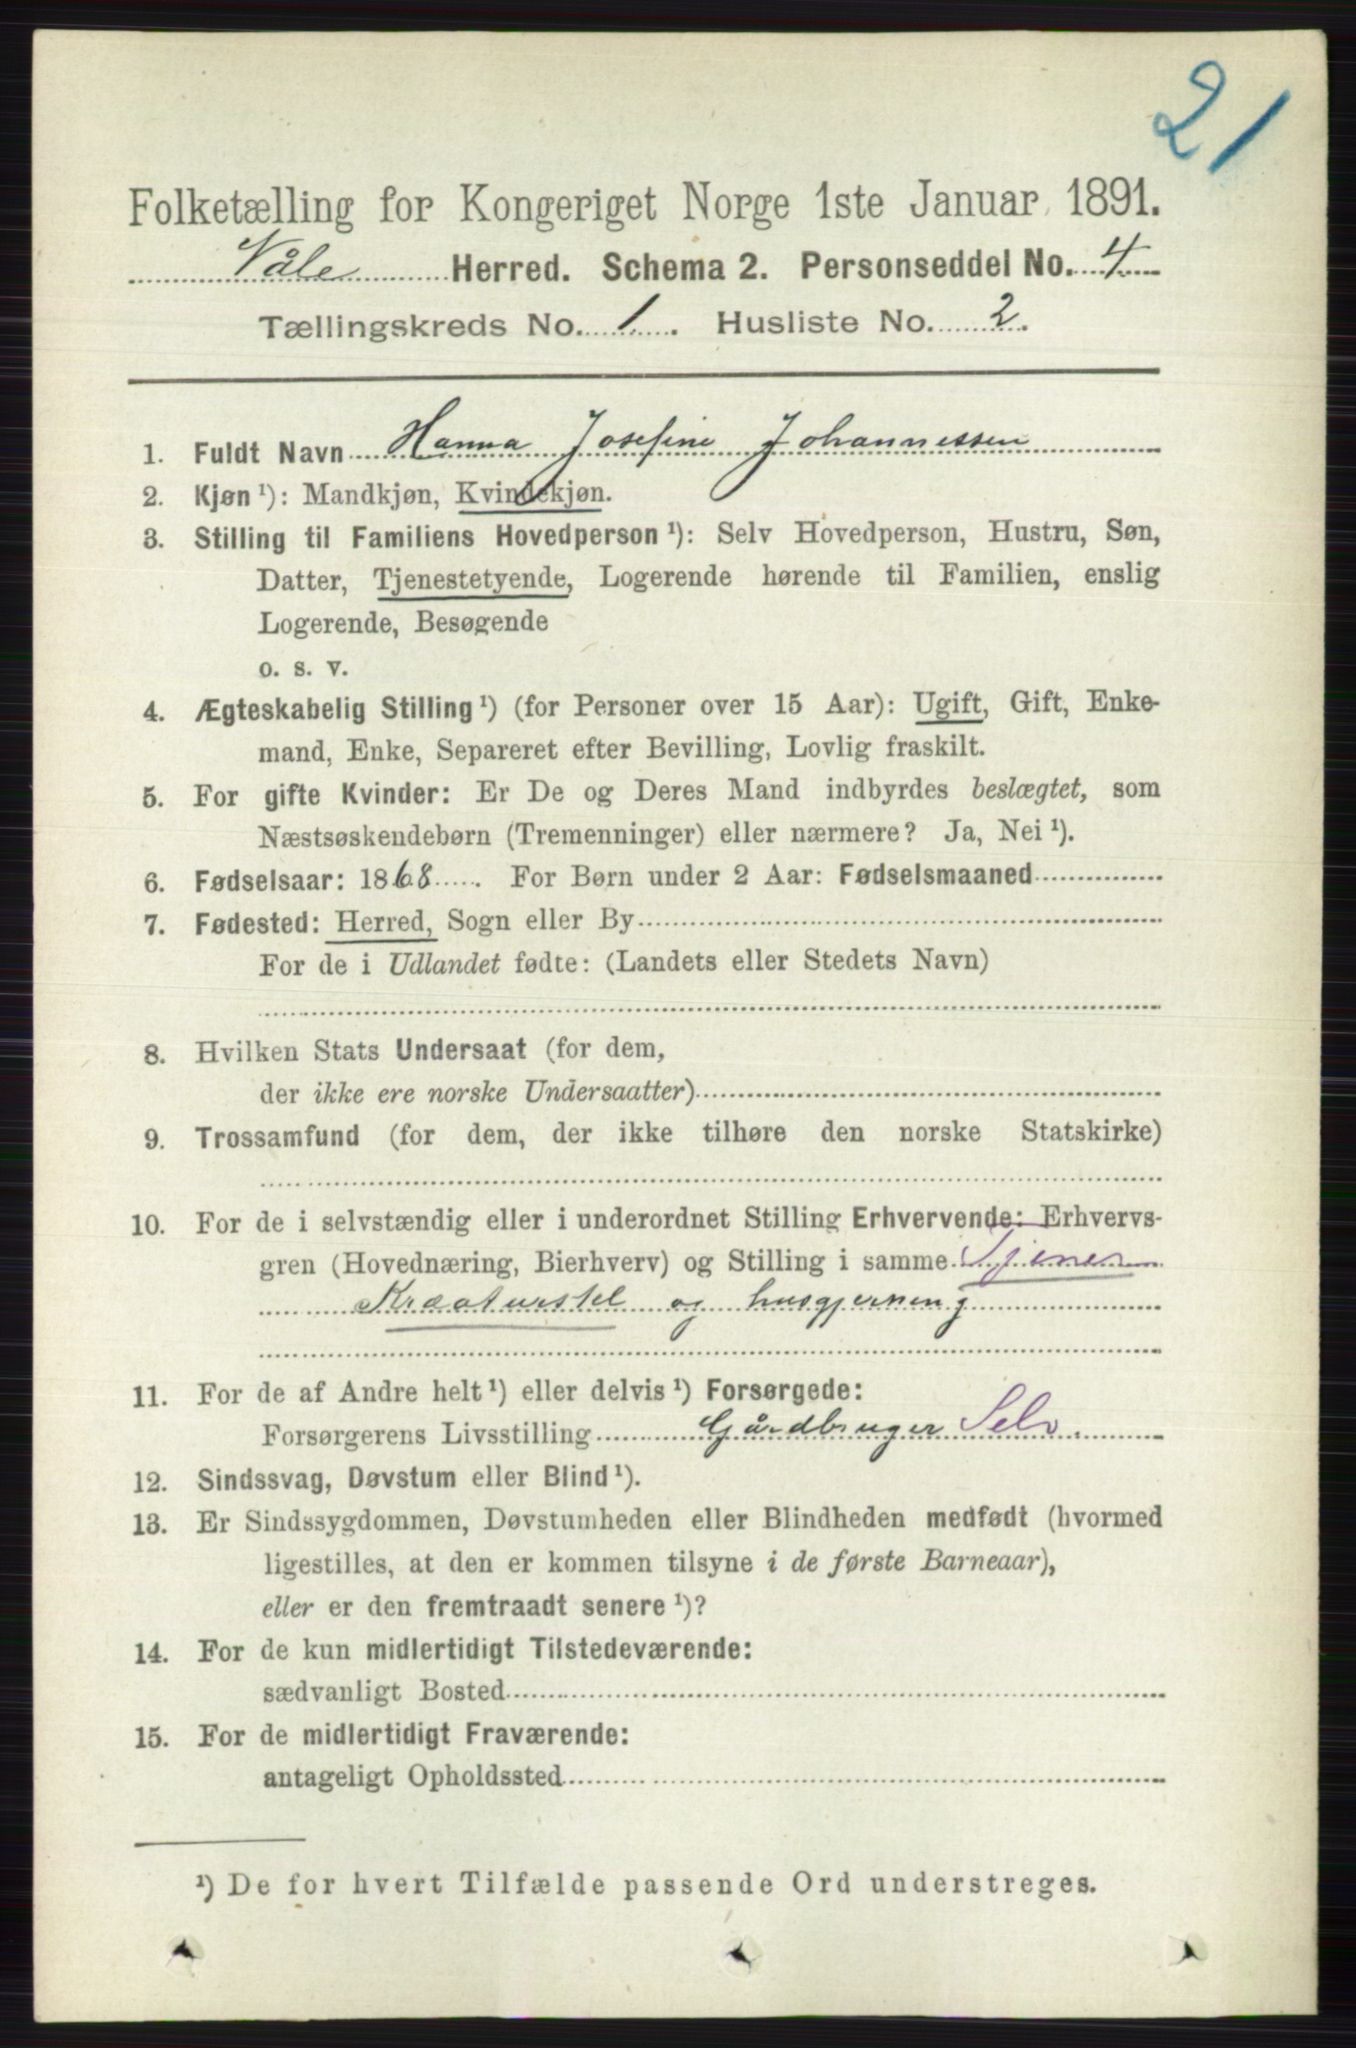 21
Folketælling for Kongeriget Norge 1ste Januar 1891.
Våle Herred. Schema 2. Personseddel No. 4
Tællingskreds No. 1. Husliste No. 2.
1. Fuldt Navn Hanna Josefine Johannessen
2. Kjøn ¹): Mandkjøn, Kvindekjøn.
3. Stilling til Familiens Hovedperson ¹): Selv Hovedperson, Hustru, Søn,
Datter, Tjenestetyende, Logerende hørende til Familien, enslig
Logerende, Besøgende
o. s. v.
4. Ægteskabelig Stilling ¹) (for Personer over 15 Aar): Ugift, Gift, Enke-
mand, Enke, Separeret efter Bevilling, Lovlig fraskilt.
5. For gifte Kvinder: Er De og Deres Mand indbyrdes beslægtet, som
Næstsøskendebørn (Tremenninger) eller nærmere? Ja, Nei ¹).
6. Fødselsaar: 1868. For Børn under 2 Aar: Fødselsmaaned
7. Fødested: Herred, Sogn eller By
For de i Udlandet fødte: (Landets eller Stedets Navn)
8. Hvilken Stats Undersaat (for dem,
der ikke ere norske Undersaatter)
9. Trossamfund (for dem, der ikke tilhøre den norske Statskirke)
10. For de i selvstændig eller i underordnet Stilling Erhvervende: Erhvervs-
gren (Hovednæring, Bierhverv) og Stilling i samme Tjener
Kræaturstel og husgjerning
11. For de af Andre helt ¹) eller delvis ¹) Forsørgede:
Forsørgerens Livsstilling Gårdbruger Selv.
12. Sindssvag, Døvstum eller Blind ¹).
13. Er Sindssygdommen, Døvstumheden eller Blindheden medfødt (hvormed
ligestilles, at den er kommen tilsyne i de første Barneaar),
eller er den fremtraadt senere ¹)?
14. For de kun midlertidigt Tilstedeværende:
sædvanligt Bosted
15. For de midlertidigt Fraværende:
antageligt Opholdssted
¹) De for hvert Tilfælde passende Ord understreges.